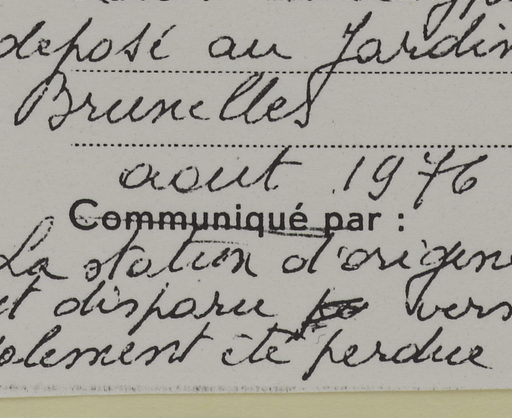 deposé au Jardin
Bruxelles
aout 1976
Communiqué par :
La station d'origine
et disparu vers
olement été perdue